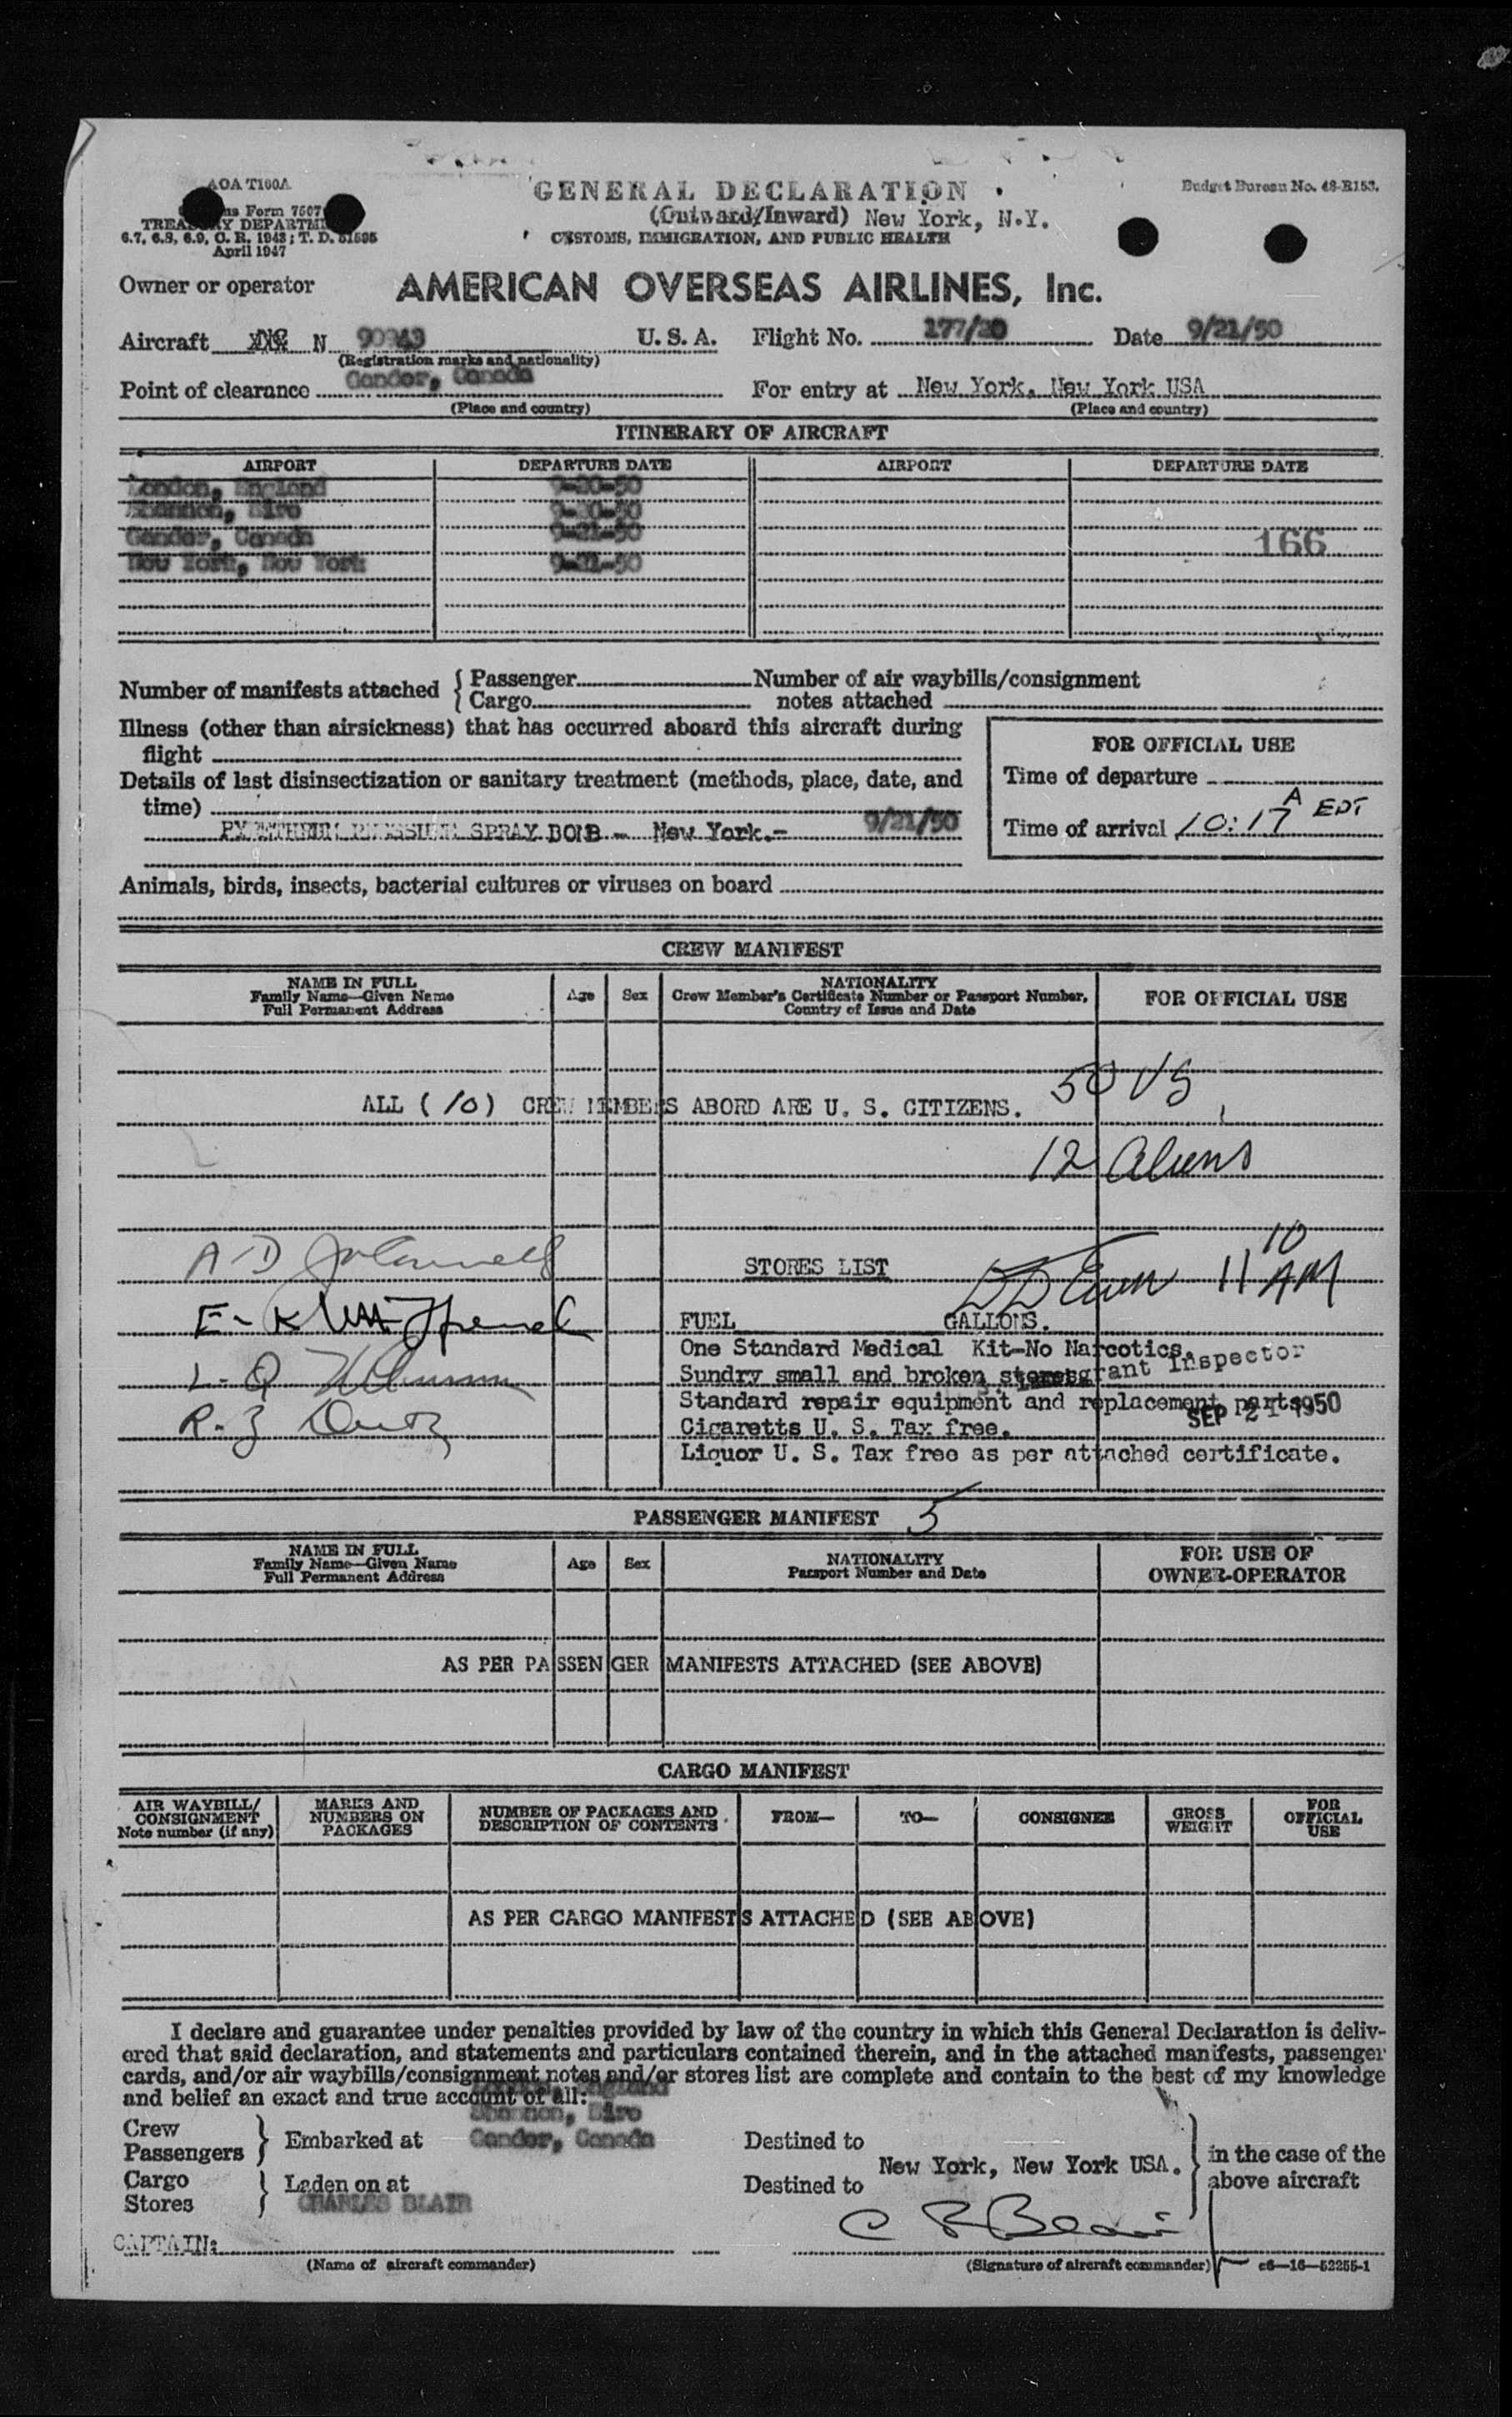 AOA T100A
GENERAL DECLARATION
Budget Bureau No. 48-R153.
Form 7507
(Outward/Inward) New York, N.Y.
TREASURY DEPARTMENT
CUSTOMS, IMMIGRATION, AND PUBLIC HEALTH
6.7, 6.8, 6.9, C. R. 1943; T. D. 51595
April 1947
Owner or operator AMERICAN OVERSEAS AIRLINES, Inc.
Aircraft N 90943 U. S. A. Flight No. 177/20 Date 9/21/50
(Registration marks and nationality)
Point of clearance Gander, Canada For entry at New York, New York USA
(Place and country) (Place and country)
ITINERARY OF AIRCRAFT
AIRPORT DEPARTURE DATE AIRPORT DEPARTURE DATE
London, England 9-20-50
Shannon, Eire 9-20-50
Gander, Canada 9-21-50
166
New York, New York 9-21-50
Number of manifests attached { Passenger Number of air waybills/consignment
Cargo notes attached
Illness (other than airsickness) that has occurred aboard this aircraft during
flight
FOR OFFICIAL USE
Details of last disinsectization or sanitary treatment (methods, place, date, and
time)
Time of departure
SPRAY BOMB - New York.- 9/21/50
Time of arrival 10:17 A EDT
Animals, birds, insects, bacterial cultures or viruses on board
CREW MANIFEST
NAME IN FULL
Family Name—Given Name
Full Permanent Address
Age Sex
NATIONALITY
Crew Member's Certificate Number or Passport Number,
Country of Issue and Date
FOR OFFICIAL USE
50 US
ALL (10) CREW MEMBERS ABORD ARE U. S. CITIZENS.
12 Aliens
A D
STORES LIST
11 10 AM
E- K
FUEL GALLONS.
One Standard Medical Kit-No Narcotics.
Sundry small and broken stores
Inspector
Standard repair equipment and replacement parts
SEP 21 1950
R. Z
Cigaretts U. S. Tax free.
Liquor U. S. Tax free as per attached certificate.
PASSENGER MANIFEST 5
NAME IN FULL
Family Name—Given Name
Full Permanent Address
Age Sex
NATIONALITY
Passport Number and Date
FOR USE OF
OWNER-OPERATOR
AS PER PASSENGER MANIFESTS ATTACHED (SEE ABOVE)
CARGO MANIFEST
AIR WAYBILL/
CONSIGNMENT
Note number (if any)
MARKS AND
NUMBERS ON
PACKAGES
NUMBER OF PACKAGES AND
DESCRIPTION OF CONTENTS
FROM—
TO—
CONSIGNEE
GROSS
WEIGHT
FOR
OFFICIAL
USE
AS PER CARGO MANIFESTS ATTACHED (SEE ABOVE)
I declare and guarantee under penalties provided by law of the country in which this General Declaration is deliv-
ered that said declaration, and statements and particulars contained therein, and in the attached manifests, passenger
cards, and/or air waybills/consignment notes and/or stores list are complete and contain to the best of my knowledge
and belief an exact and true account of all:
England
Shannon, Eire
Crew
Passengers } Embarked at Gander, Canada Destined to
New York, New York USA.
in the case of the
above aircraft
Cargo
Stores } Laden on at Destined to
CHARLES BLAIR
C F Blair
CAPTAIN:
(Name of aircraft commander) (Signature of aircraft commander) c6—16—52255-1